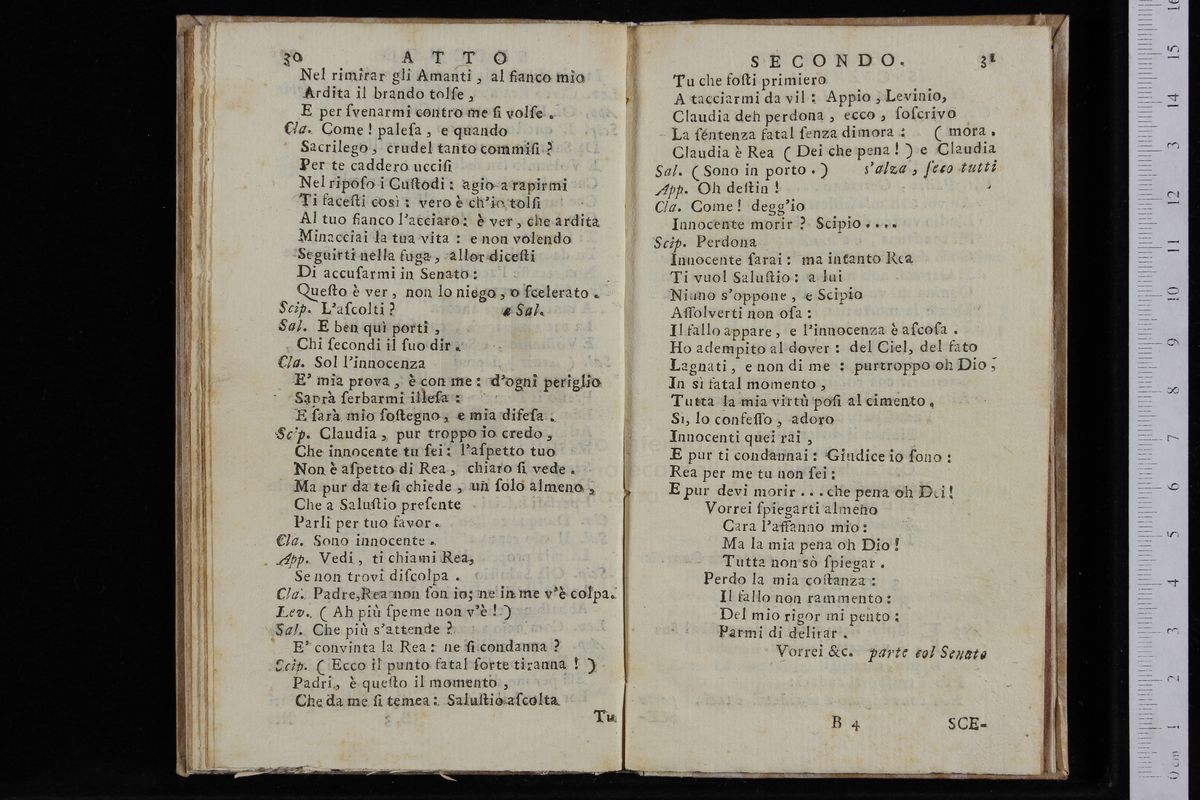 30 ATTO
Nel rimirar gli Amanti, al fianco mio
Ardita il brando tolſe,
E per ſvenarmi contro me ſi volſe.
Cla. Come! paleſa, e quando
Sacrilego, crudel tanto commiſi?
Per te caddero ucciſi
Nel ripoſo i Cuſtodi: agio a rapirmi
Ti faceſti così: vero è ch'io tolſi
Al tuo fianco l'acciaro: è ver, che ardita
Minacciai la tua vita: e non volendo
Seguirti nella fuga, allor diceſti
Di accuſarmi in Senato:
Queſto è ver, non lo niego, o ſcelerato.
Scip. L'aſcolti? a Sal.
Sal. E ben quì porti,
Chi ſecondi il ſuo dir.
Cla. Sol l'innocenza
E' mia prova, è con me: d'ogni periglio
Saprà ſerbarmi illeſa:
E ſarà mio ſoſtegno, e mia difeſa.
Scip. Claudia, pur troppo io credo,
Che innocente tu ſei: l'aſpetto tuo
Non è aſpetto di Rea, chiaro ſi vede.
Ma pur da te ſi chiede, un ſolo almeno,
Che a Saluſtio preſente
Parli per tuo favor.
Cla. Sono innocente.
App. Vedi, ti chiami Rea,
Se non trovi diſcolpa.
Cla. Padre, Rea non ſon io; ne in me v'è colpa.
Lev. (Ah più ſpeme non v'è!)
Sal. Che più s'attende?
E' convinta la Rea: ne ſi condanna?
Scip. (Ecco il punto fatal ſorte tiranna!)
Padri, è queſto il momento,
Che da me ſi temea: Saluſtio aſcolta
Tu
SECONDO. 31
Tu che foſti primiero
A tacciarmi da vil: Appio, Levinio,
Claudia deh perdona, ecco, ſoſcrivo
La ſentenza fatal ſenza dimora: (mora.
Claudia è Rea (Dei che pena!) e Claudia
Sal. (Sono in porto.) s'alza, ſeco tutti
App. Oh deſtin!
Cla. Come! degg'io
Innocente morir? Scipio....
Scip. Perdona
Innocente ſarai: ma intanto Rea
Ti vuol Saluſtio: a lui
Niuno s'oppone, e Scipio
Aſſolverti non oſa:
Il fallo appare, e l'innocenza è aſcoſa.
Ho adempito al dover: del Ciel, del fato
Lagnati, e non di me: purtroppo oh Dio,
In sì fatal momento,
Tutta la mia virtù poſi al cimento.
Sì, lo confeſſo, adoro
Innocenti quei rai,
E pur ti condannai: Giudice io ſono:
Rea per me tu non ſei:
E pur devi morir... che pena oh Dei!
Vorrei ſpiegarti almeno
Cara l'affanno mio:
Ma la mia pena oh Dio!
Tutta non sò ſpiegar.
Perdo la mia coſtanza:
Il fallo non rammento:
Del mio rigor mi pento:
Parmi di delirar.
Vorrei &c. parte col Senato
B 4 SCE-
0 cm 1 2 3 4 5 6 7 8 9 10 11 12 13 14 15 16